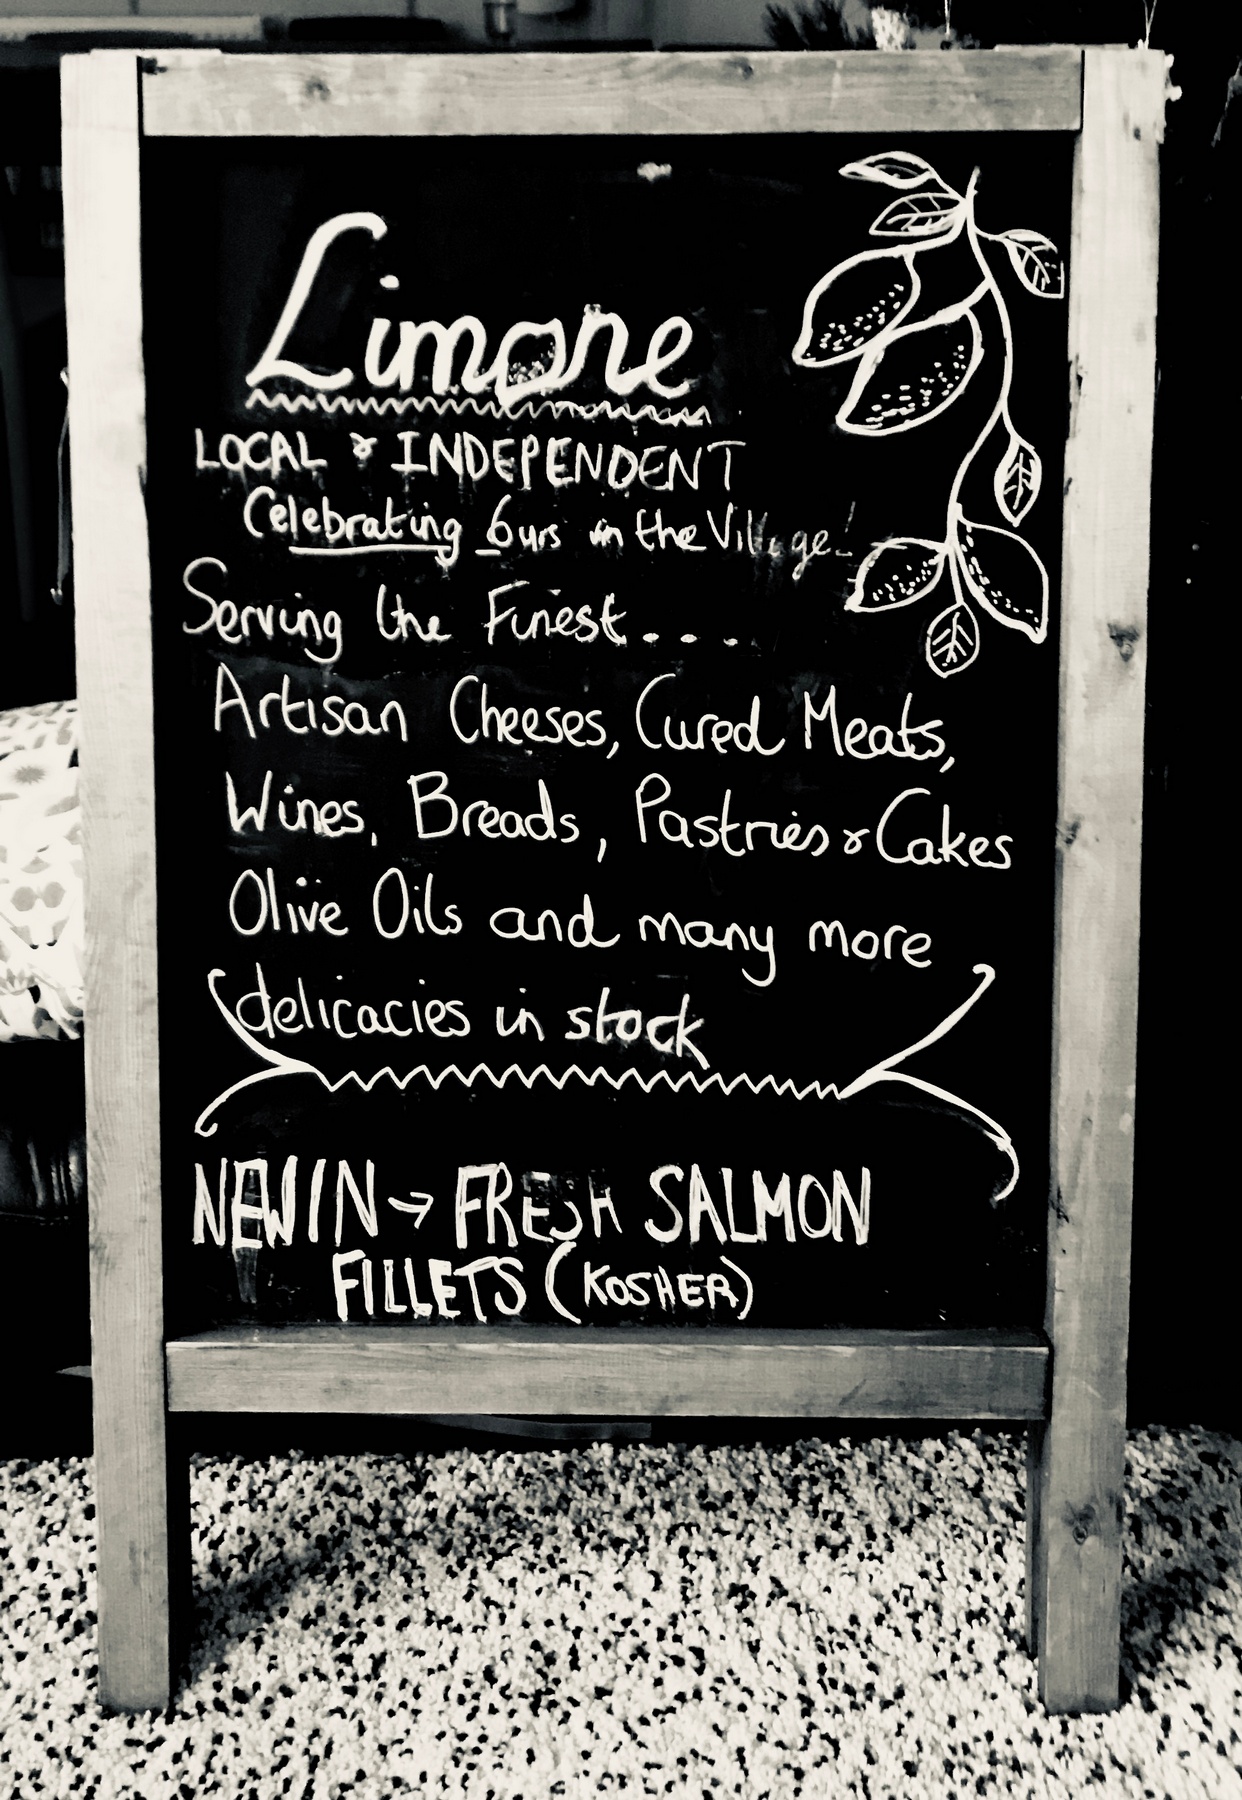 Limone
LOCAL & INDEPENDENT
Celebrating 6yrs in the Village!
Serving the Finest....
Artisan Cheeses, Cured Meats,
Wines, Breads, Pastries & Cakes
Olive Oils and many more
delicacies in stock
NEW IN → FRESH SALMON
FILLETS (KOSHER)